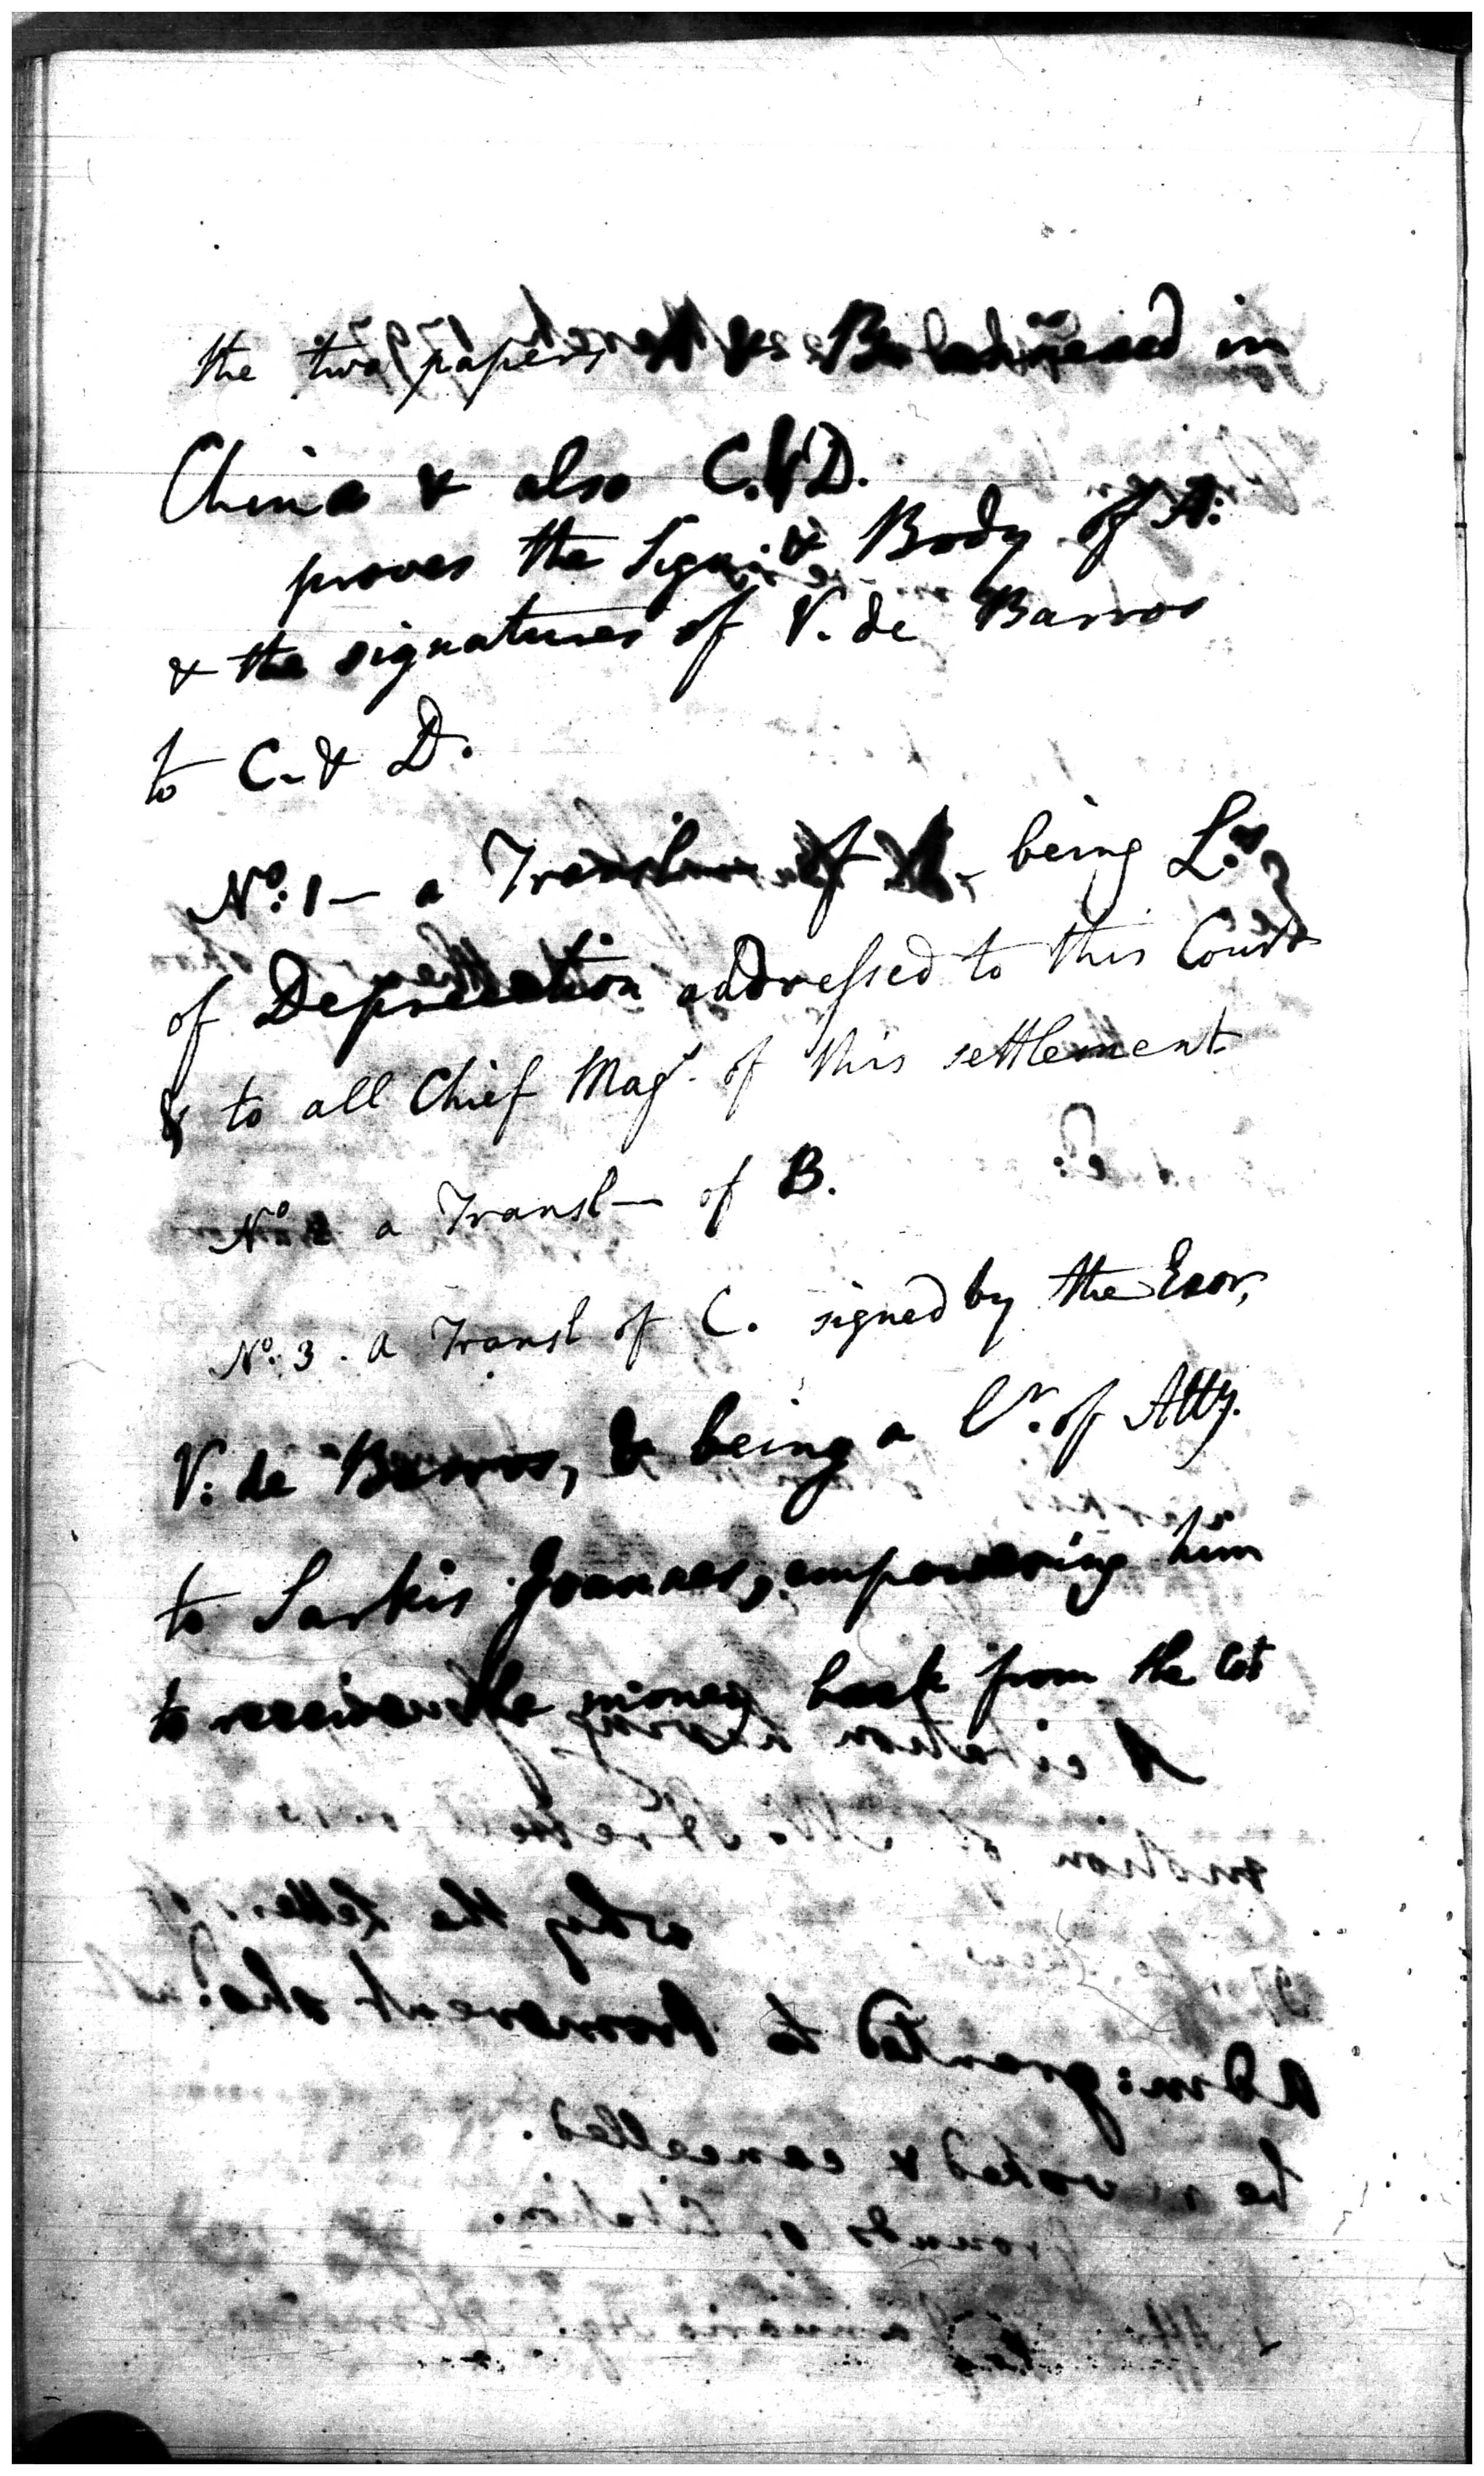 the two papers A & B in
China & also C. & D.
proves the Sign: & Body of A:
& the signatures of V. de Barros
to C. & D.
No: 1 — a Transl— of A. being L.rs
of Deprecation addressed to this Court
& to all Chief Mag.s of this settlement
No 2 a Transl— of B.
No: 3. a Transl of C. signed by the Exor,
V: de Barros, & being a Pr. of Atty.
to Sarkis Joannes, empowering him
to receive the money back from the Cot